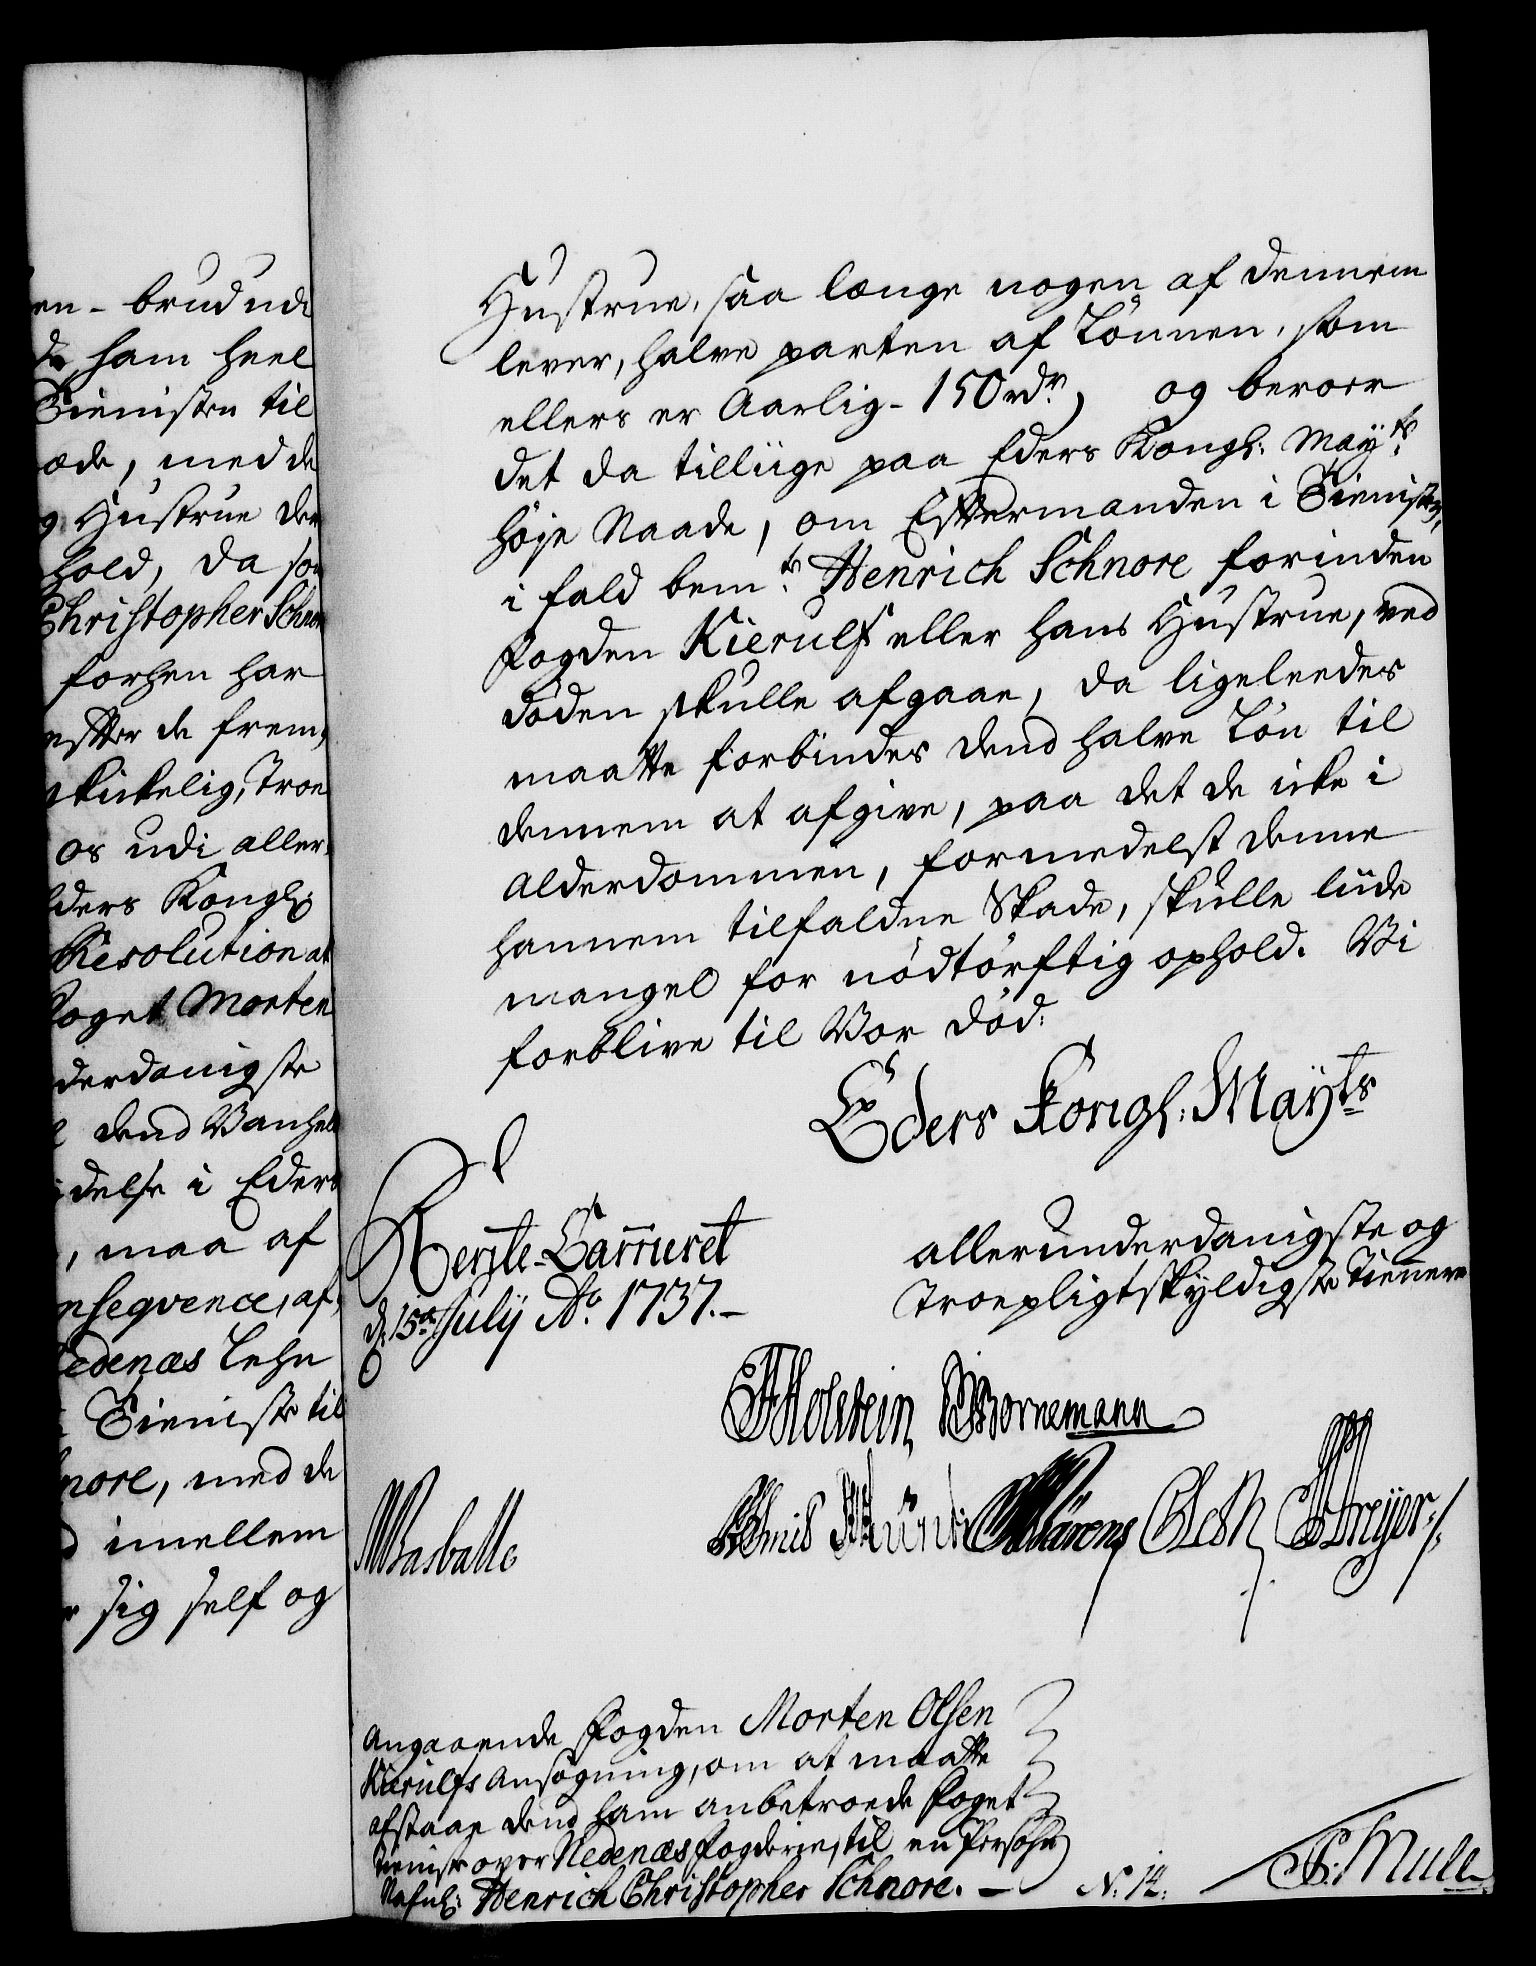 en - brud udi
ham heel
Tieniste til
æde, med de
Hustrue der
hold, da som
Christopher Schnor
forhen har
efter de frem,
skikkelig, Troe
os udi aller,
Eders Kongl:
Resolution at
Foget Morten
derdanigste
dend Vanhel
delse i Eders
, maa af
nseqvence, af,
edenæs Lehn
Tieniste til
nore, med de
imellem
sig self og
Hustrue, saa længe nogen af dennem
lever, halve parten af Lönnen, som
ellers er Aarlig - 150 rdr, og beroer
det da tilliige paa Eders Kongl: Mayts
höje Naade, om Efftermanden i Tienisten,
i fald bemte Henrich Schnore forinden
Fogden Kierulf eller hans Hustrue, ved
döden skulle afgaae, da ligeleedes
maatte forbindes dend halve Lön til
dennem at afgive, paa det de icke i
Alderdommen, formedelst denne
hannem tilfaldne Skade, skulle liide
mangel for nödtörftig ophold. Vi
forblive til Vor död.
Eders Kongl: Mayts
Rente-Cammeret
d. 15de July Ao. 1737. -
allerunderdanigste og
Troepligtskyldigste Tienere
Holstein Bornemann
Basballe
Dreyer
Angaaende Fogden Morten Olsen
Kierulfs Ansögning, om at maatte
afstaae dend ham anbetroede Foget
tieniste over Nedenæs Fogderie, til en Persohn
Nafnl: Henrich Christopher Schnore. -
N: 14.